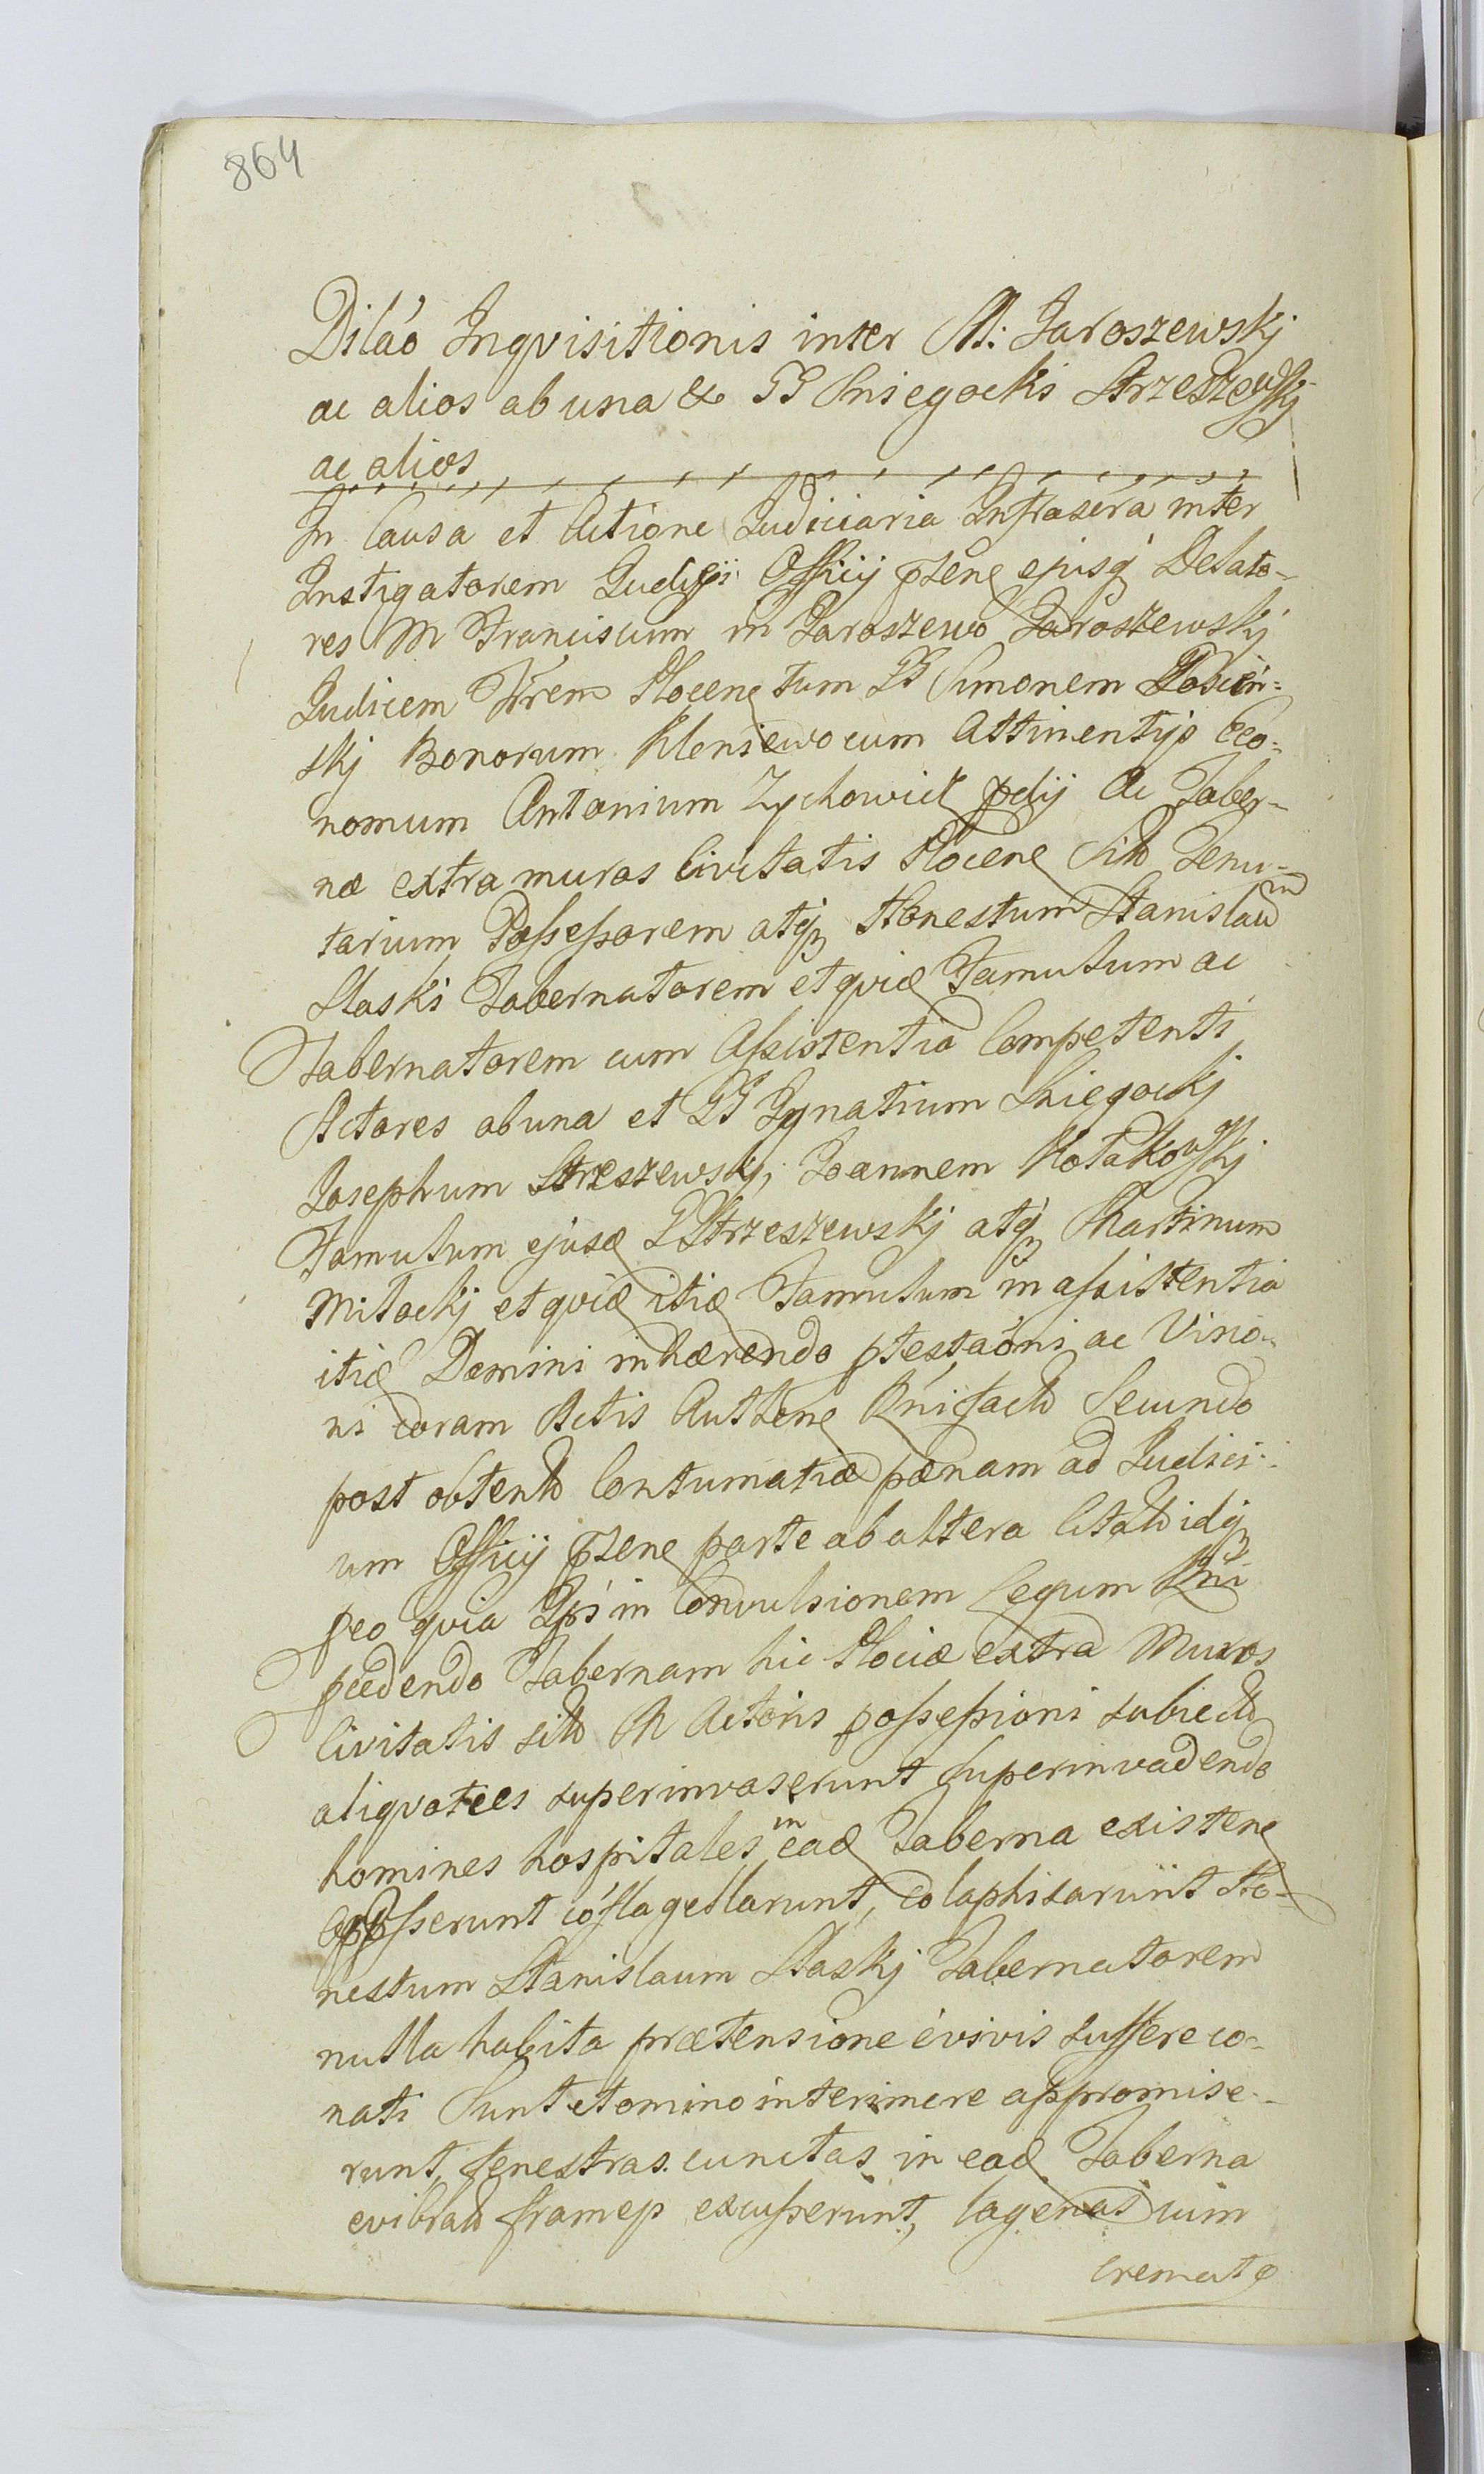 864
Diláo Inqvisitionis inter M: Jaroszewskj
ac alios ab una & GG Sniegocki Strzeszewskj
ac alios
In Causa et Actione Judiciaria Infrascra inter
Instigatorem Officij psenc ejusq Delato-
res M Franciscum in Jaroszewo Jaroszewskj
Judicem Plocenc tum GG Simonem
skj Bonorum Kleniewo cum Attinentijs Oeco-
nomum Antonium Zychowicz pdij Ac Taber-
næ extra muros Civitatis Plocenc Sito Tenu-
tarium Possessorem atq Honestum Stanislaum
Staski Tabernatorem et qvid Famulum ac
Tabernatorem cum Assistentia Competenti
Actores ab una et GG Ignatium Sniegockj
Josephum Streszewskj, Joannem Kotakowskj
Famulum ejusd G Strzeszewskj atq Martinum
Mitockj et qvid itid Famulum in assistentia
itid Domini inhærendo ptestaóni ac Visio-
ni coram Actis Authenc facto Secundo
post obtento Contumatiæ pænam ad Judici-
um Officij psenc parte ab altera Citato idq
peo qvia Ipsi in Convulsionem Legum Rni
pcedendo Tabernam hic Plociæ extra Muros
Civitatis sito M Actoris possessioni subiecto
aliqvoties superinvaserunt superinvadendo
homines hospitales in ead Taberna existenc
cóflagellarunt, colaphisarunt Ho-
nestum Stanislaum Staskj Tabernatorem
nulla habita prætensione évivis tuffere co-
nati Sunt et omino interimere appromise-
runt, fenestras cunctas in ead Taberna
evibrato framep excusserunt, lagenas cum
cremato